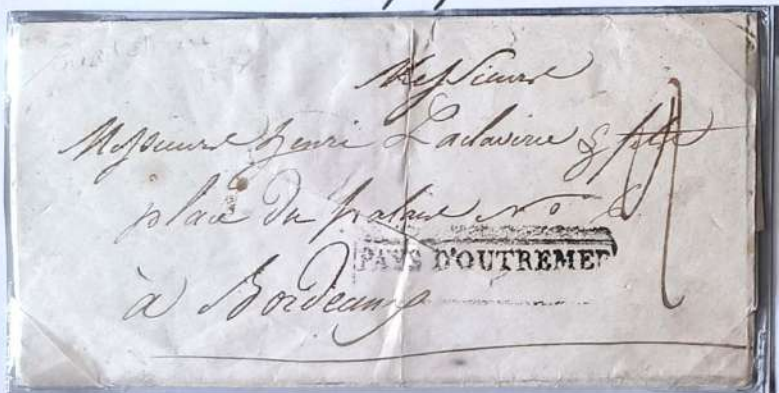 Messieurs
Messieurs henri Laclaverie & fils
place du palais N° 6.
PAYS D'OUTREMER
à Bordeaux